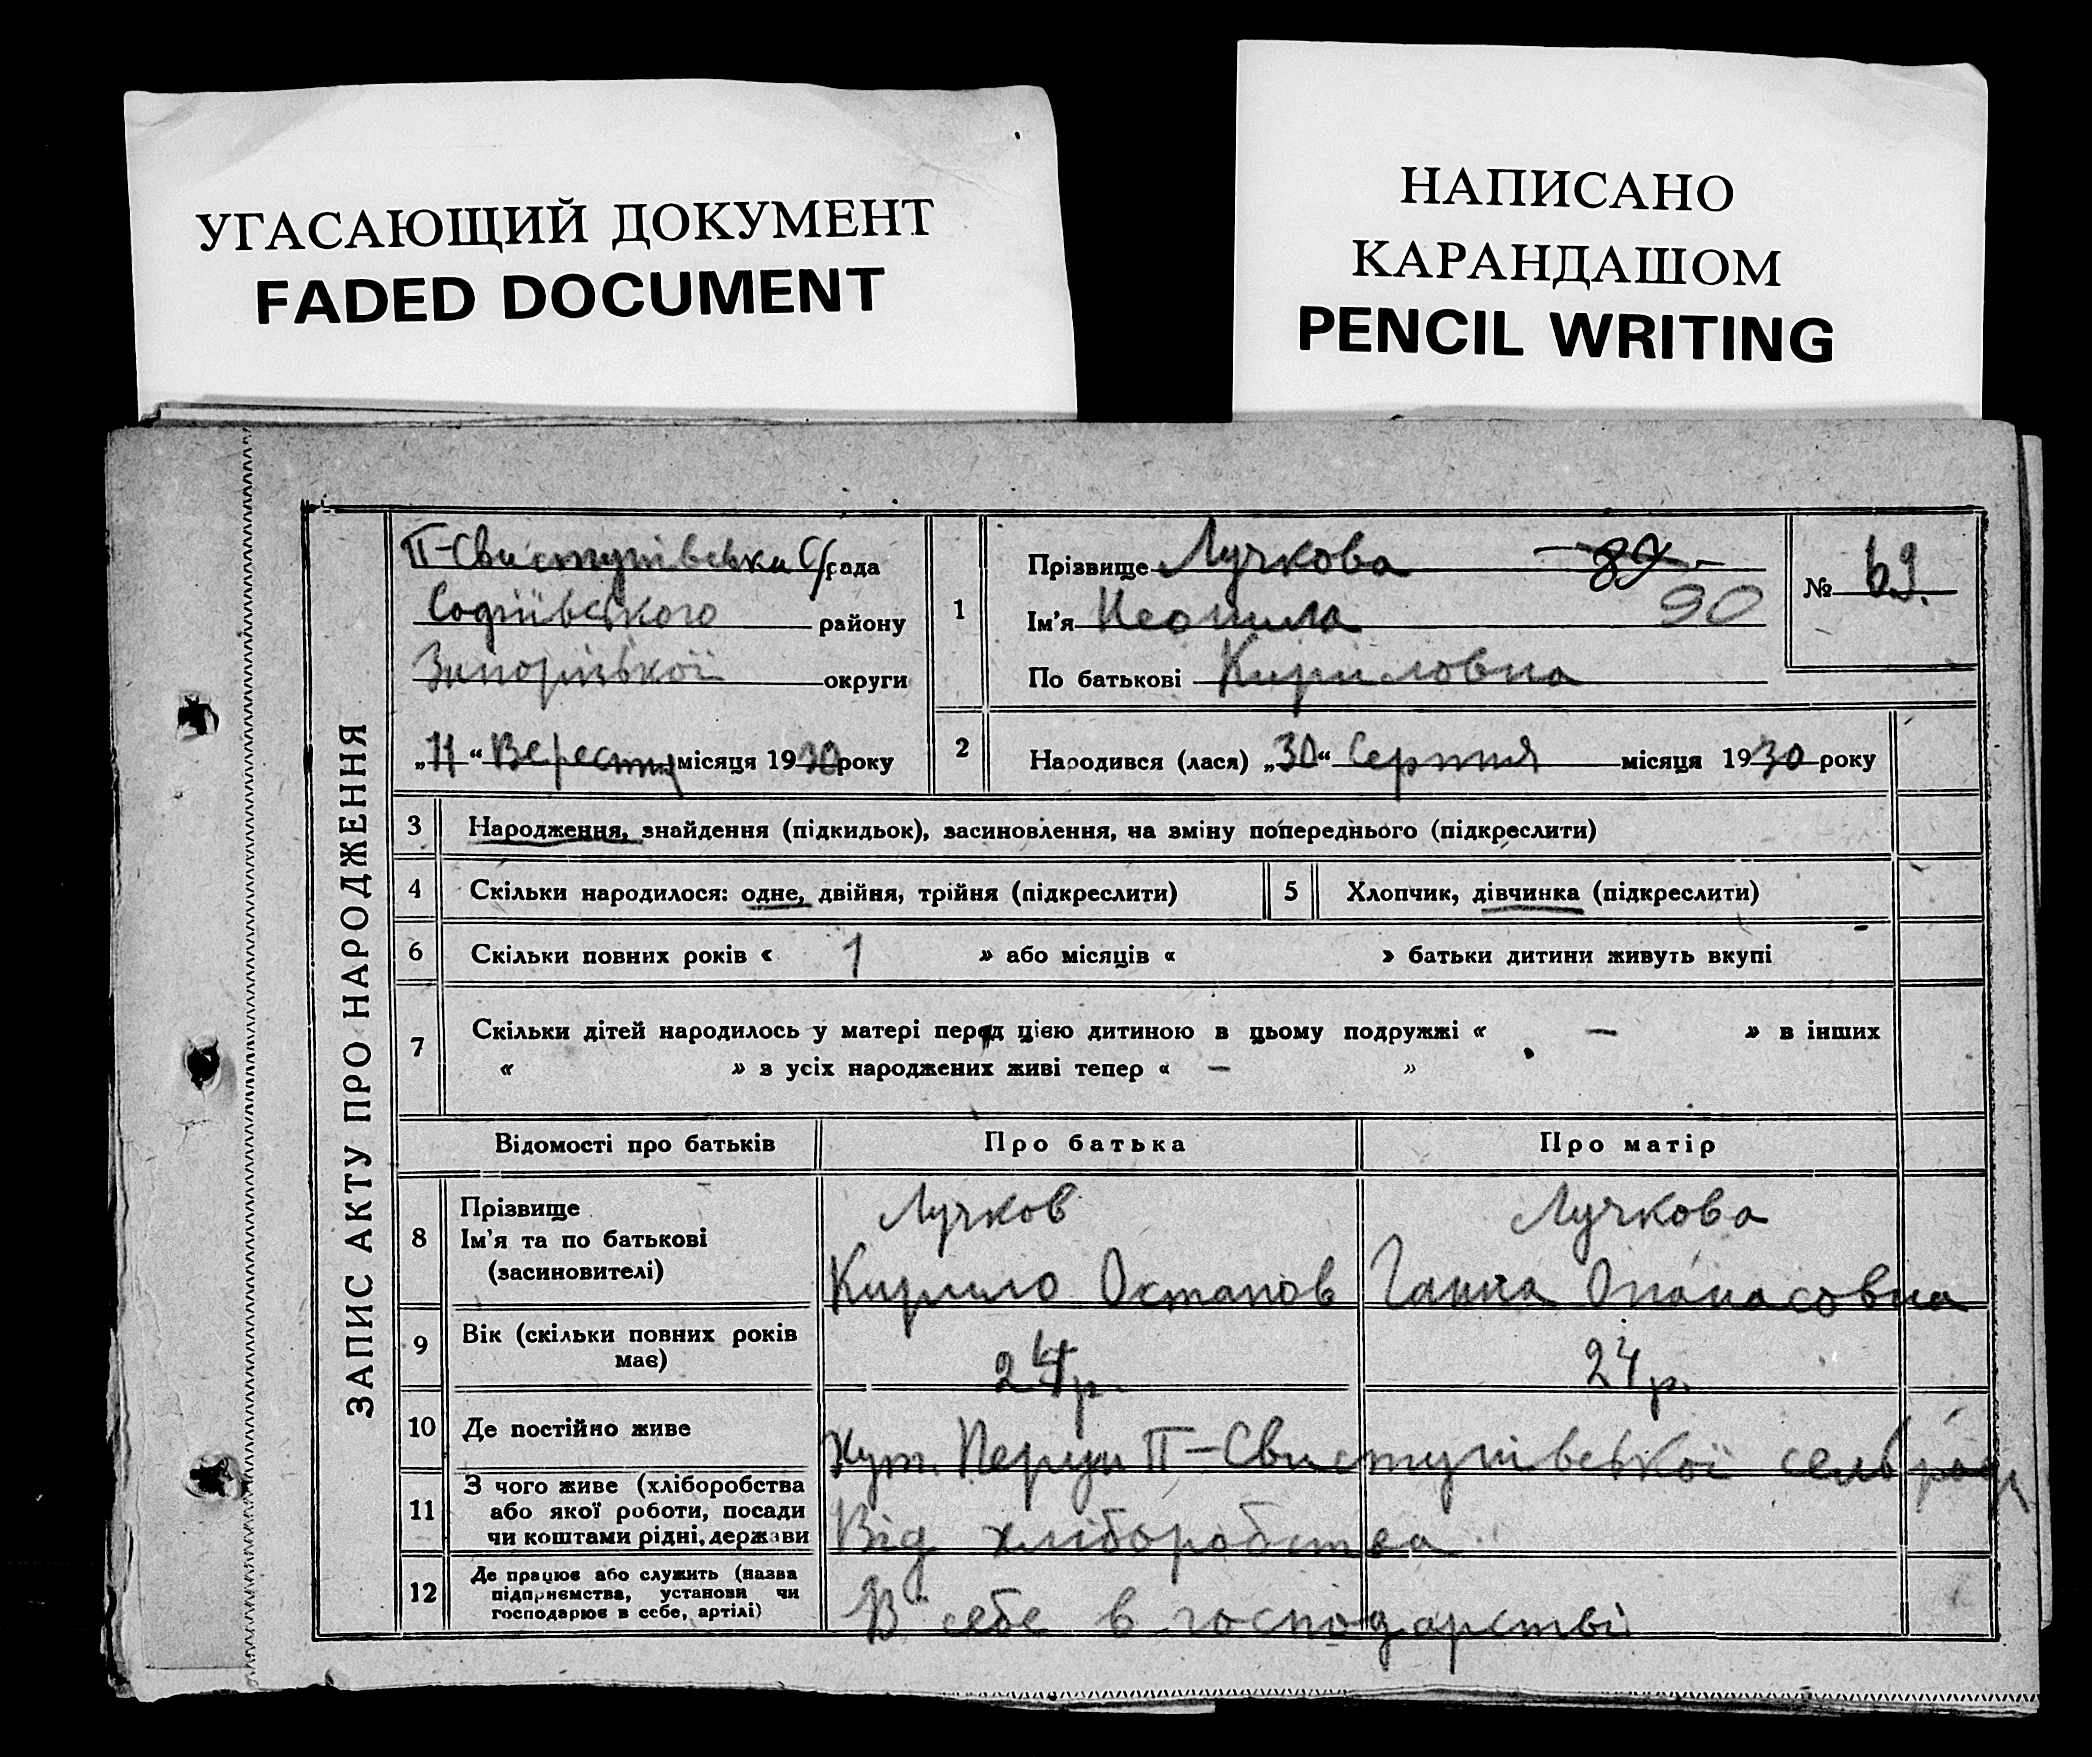 УГАСАЮЩИЙ ДОКУМЕНТ
FADED DOCUMENT
НАПИСАНО
КАРАНДАШОМ
PENCIL WRITING
ЗАПИС АКТУ ПРО НАРОДЖЕННЯ
П-Свистунівська С/рада
Софіївського району
Запорізької округи
„11“ Вересня місяця 1930 року
1
Прізвище Лучкова
Ім'я Неонила 90
По батькові Кириловна
№ 69.
2 Народився (лася) „30“ Серпня місяця 1930 року
3 Народження, знайдення (підкидьок), засиновлення, на зміну попереднього (підкреслити)
4 Скільки народилося: одне, двійня, трійня (підкреслити) 5 Хлопчик, дівчинка (підкреслити)
6 Скільки повних років « 1 » або місяців « » батьки дитини живуть вкупі
7 Скільки дітей народилось у матері перед цією дитиною в цьому подружжі « — » в інших
« » з усіх народжених живі тепер « — »
Відомості про батьків Про батька Про матір
8 Прізвище Лучков Лучкова
Ім'я та по батькові
(засиновителі) Кирило Остапов Ганна Опанасовна
9 Вік (скільки повних років
має) 24 р. 24 р.
10 Де постійно живе Хут. Перун П-Свистунівської сельради
11 З чого живе (хліборобства
або якої роботи, посади
чи коштами рідні, держави Від хліборобства
12 Де працює або служить (назва
підприємства, установи чи
господарює в себе, артілі) В себе в господарстві